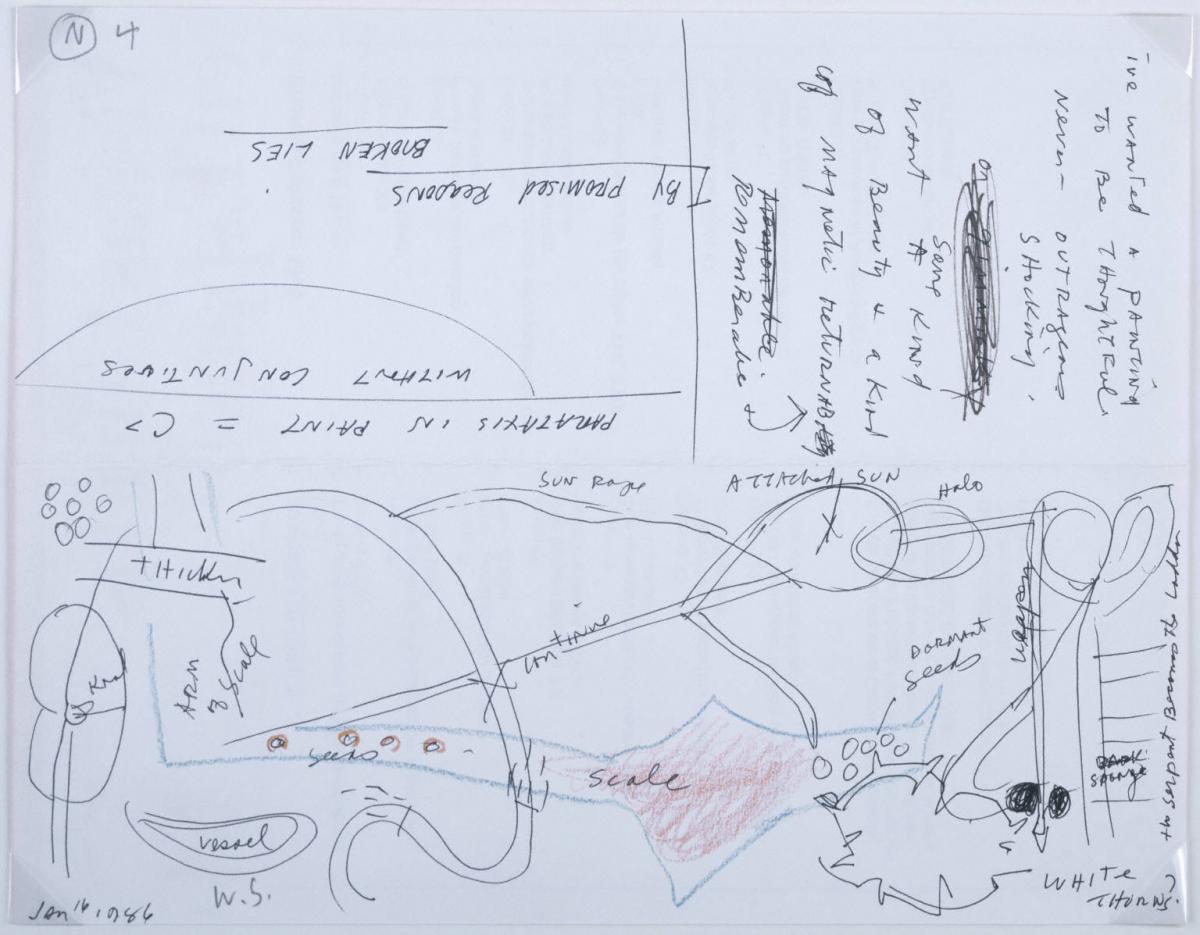 N 4
BROKEN LIES
By PROMISED Reasons
WITHOUT CONJUNTIVES
PARATAXIS IN PAINT = C7
ive wanted A PAINTING
TO BE THOUGHTFUL
Never - OUTRAGEOUS
SHOCKING.
or
WANT A KIND
Same
of Beauty & a Kind
of MAGNETIC RETURNAB
RemembeRable +
SUN Rope
ATTACHED SUN
Halo
tHicken
ARM
of Scale
Knot
DORMANT
Seeds
WEAPON
the serpent Becomes The Ladder
seeds
Scale
DARK
SPONGE
Vessel
W.S.
Jan 16, 1986
WHITE
THORNS